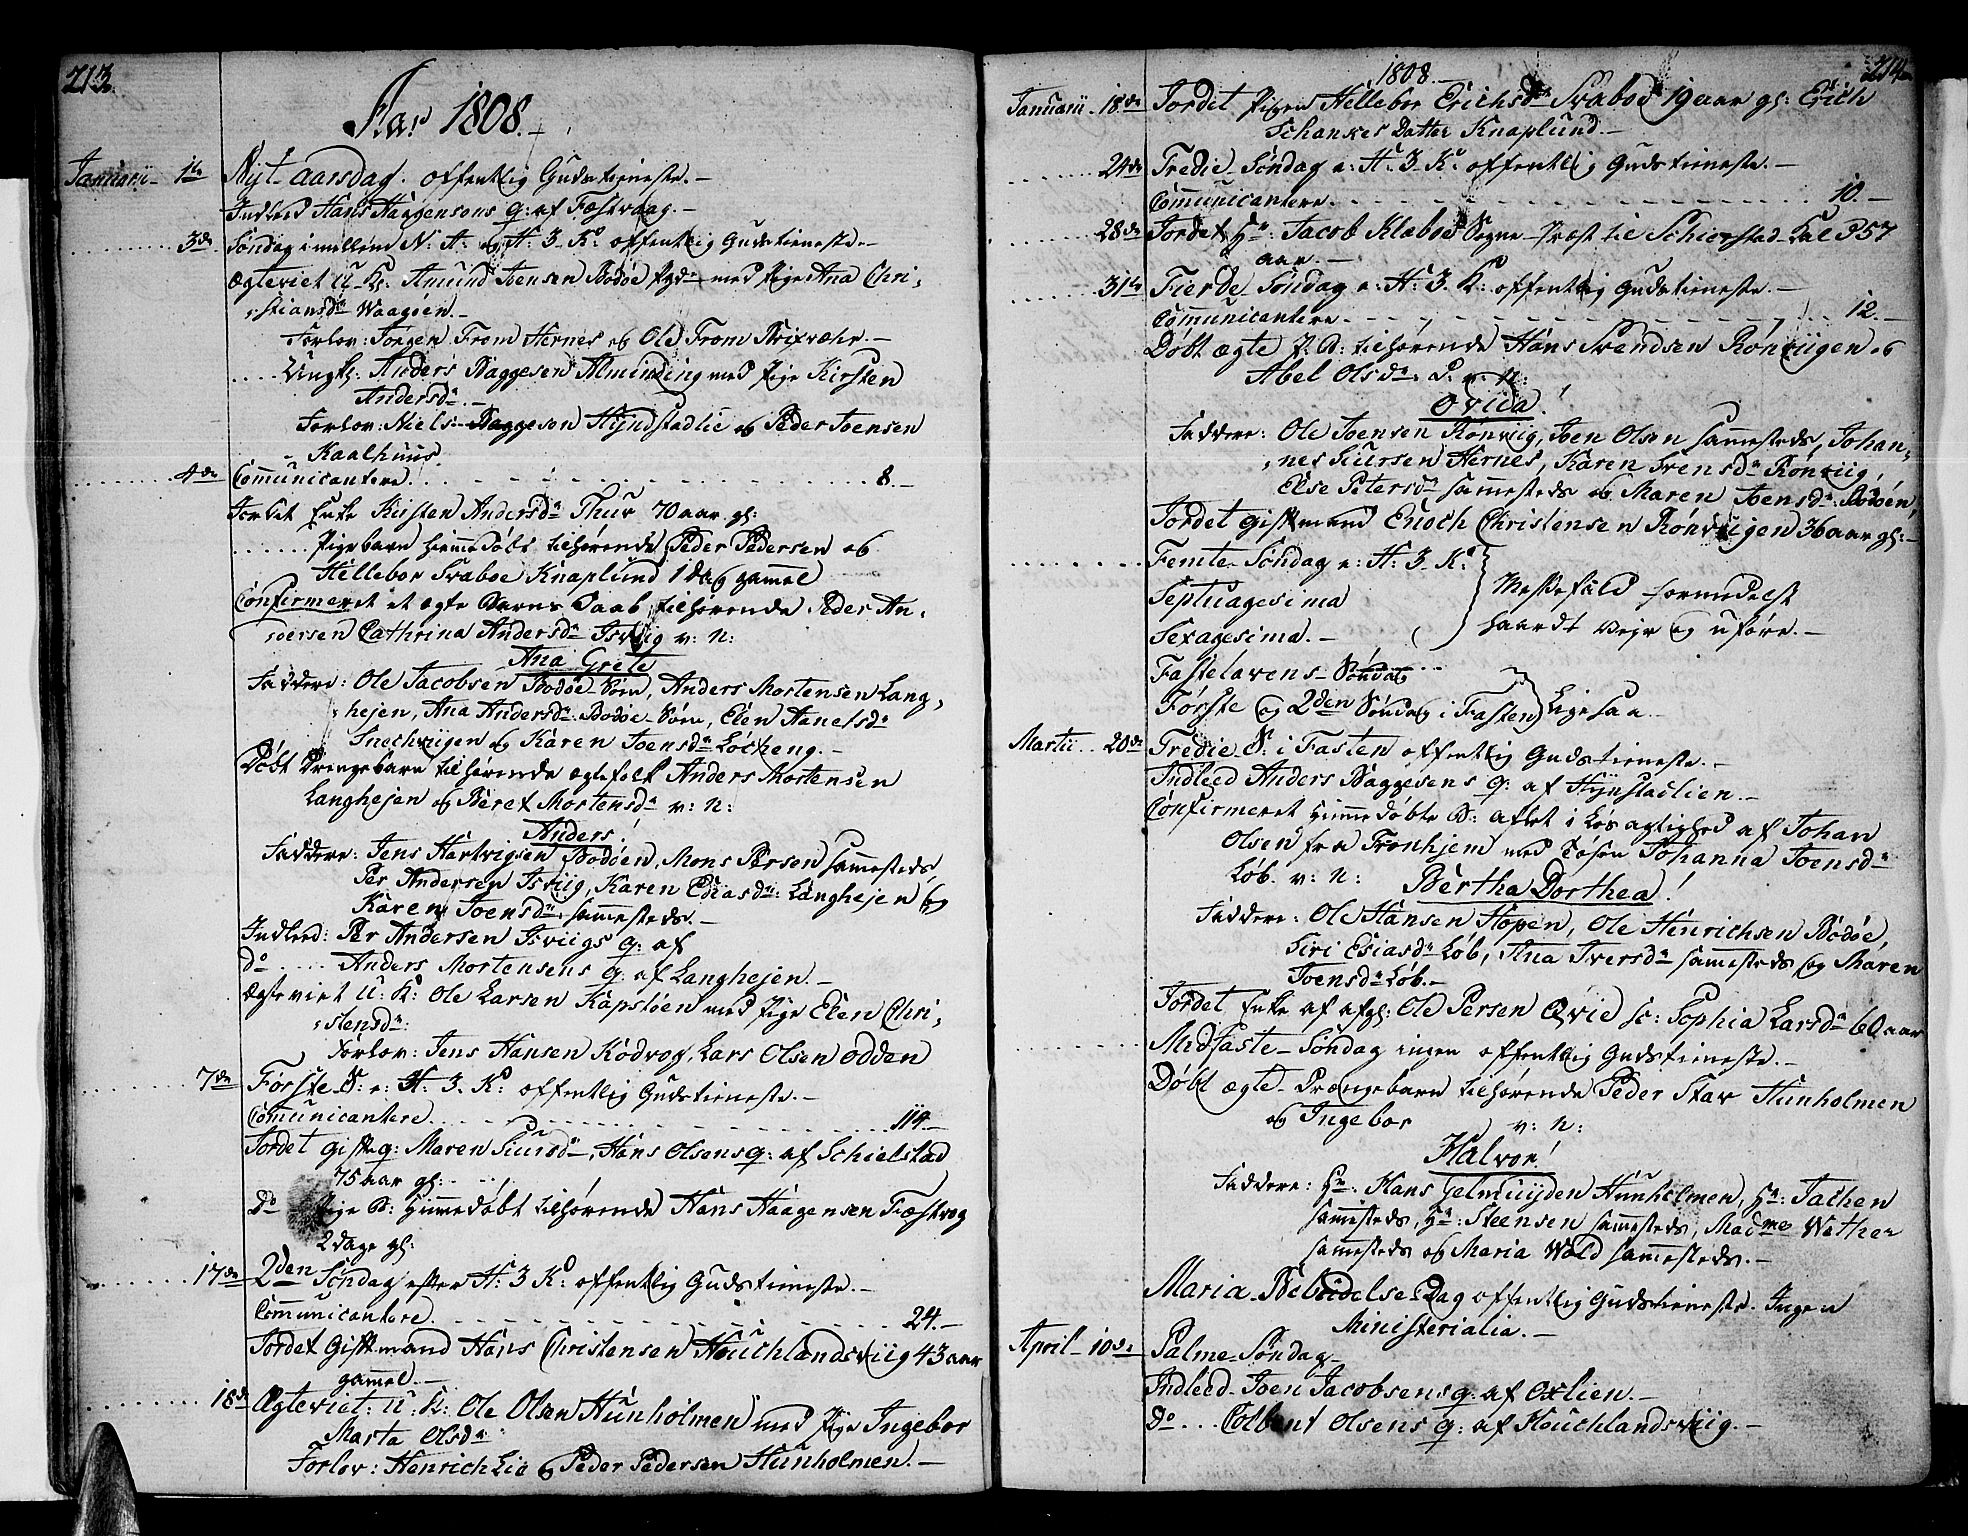 213.
Aar 1808.
Januarii 1te Nyt-aarsdag. offentlig Gudstieneste.
Indleed Hans Haggensons q: af Fæstvaag.
3de Søndag imellem N: A: og H: 3. K: offentlig Gudstieneste.
Ægteviet u. K: Amund Joensen Bodøe med Pige Ana Chri-
stiansdr Waagøen.
Forlov: Jørgen From Hernes og Ole From
Ungk: Anders Baggesen Alminding med Pige Kirsten
Andersdr.
Forlov: Niels Baggesen Hyndstadlie og Peder Joensen
Kaalhuus.
4de Communicantere 8.
Jordet Enke Kirsten Andersdr Thuv 70 aar gl:
Pigebarn hiemmedøbt tilhørende Peder Pedersen og
Hellebor Svaboe Knaplund 1 dag gammel
Confirmeret et ægte Barns Daab tilhørende Peder An-
dersen Cathrina Andersdr Jsviig v: n:
Ana Grete
Faddere: Ole Jacobsen Bodøe-Søen, Anders Mortensen Lang-
hejen, Ana Andersdr Bodøe-Søen, Elen Aanetsdr
Snechviigen og Karen Joensdr Løcheng.
Døbt Drengebarn tilhørende ægtefolk Anders Mortensen
Langhejen og Beret Mortensdr v: n:
Anders!
Faddere: Jens Hartvigsen Bodøen, Mons Persen sammesteds,
Per Andersen Jsviig, Karen Esiasdr Langhejen og
Karen Joensdr sammesteds.
Indleed: Per Andersen Jsviigs q: af
Do Anders Mortensens q: af Langhejen.
Ægteviet u: K: Ole Larsen Kapstøen med Pige Elen Chri-
stensdr:
Forlov: Jens Hansen Kodvog, Lars Olsen Odden
7de Første S: e: H: 3. K: offentlig Gudstieneste.
Communicantere 114.
Jordet gift q: Maren Siursdr, Hans Olsens q: af Schielstad
75 aar gl:
Do Pige B: hiemmedøbt tilhørende Hans Haagensen Fæstvog
2 dage gl:
17de 2den Søndag efter H: 3 K: offentlig Gudstieneste.
Communicantere 24.
Jordet Giftmand Hans Christensen Houchlandsviig 43 aar
gammel.
18de Ægteviet: u: K: Ole Olsen Hunholmen med Pige Ingebor
Marta Olsdr
Forlov: Henrich Lie og Peder Pedersen Hunholmen.
1808. 214.
Januarii 18de Jordet Pigen Hellebor Erichsdr Svaboe 19 aar gl: Erich
Schankes Datter Knaplund.
24de Tredie Søndag e: H: 3 K: offentlig Gudstieneste.
Communicantere 10.
28de Jordet Hr: Jacob Klæboe Sogne-Præst til Schierstad Kal 57
aar.
31te Fierde Søndag e: H: 3. K: offentlig Gudstieneste.
Communicantere 12.
Døbt ægte P. B: tilhørende Hans Svendsen Rønviigen og
Abel Olsdr v: n:
Oviia!
Faddere: Ole Joensen Rønviig, Joen Olsen sammesteds, Johan-
nes Siursen Hernes, Karen Svensdr Rønviig,
Else Petersdr sammesteds og Maren Joensdr Bodøen,
Jordet giftmand Enoch Christensen Rønviigen 36 aar gl:
Femte Søndag e: H: 3. K:
Septuagesima Messefald formedelst
Sexagesima. haardt Vejr og uføre.
Fastelavens-Søndag
Første og 2den Søndag i Fasten Ligesaa
Martii 20de Tredie S: i Fasten offentlig Gudstieneste.
Indleed Anders Baggesens q: af Hynstadlien.
Confirmeret hiemmedøbte B: aflet i Løsagtighed af Johan
Olsen fra Tronhjem med Tøsen Johanna Joensdr
Løb. v: n: Bertha Dorthea!
Faddere: Ole Hansen Hopen, Ole Henrichsen Bodøe,
Siri Esiasdr Løb, Ana Iversdr sammesteds og Maren
Joensdr Løb.
Jordet Enke af afgl: Ole Persen Qvie sc: Sophia Larsdr 60 aar
Midfaste-Søndag ingen offentlig Gudstieneste.
Døbt ægte-Drængebarn tilhørende Peder Stav Hunholmen
og Ingebor v: n:
Halvor!
Faddere: Hr: Hans Gelmuyden Hunholmen, Hr: Jathen
sammesteds, Hr: Steensen sammesteds, Madme Wether
sammesteds og Maria Wold sammesteds.
Maria-Bebudelses Dag offentlig Gudstieneste. Ingen
Ministerialia.
April 10de Palme-Søndag
Indleed Joen Jacobsens q: af Oxlien.
Do Colbent Olsens q: af Houchlandsviig.